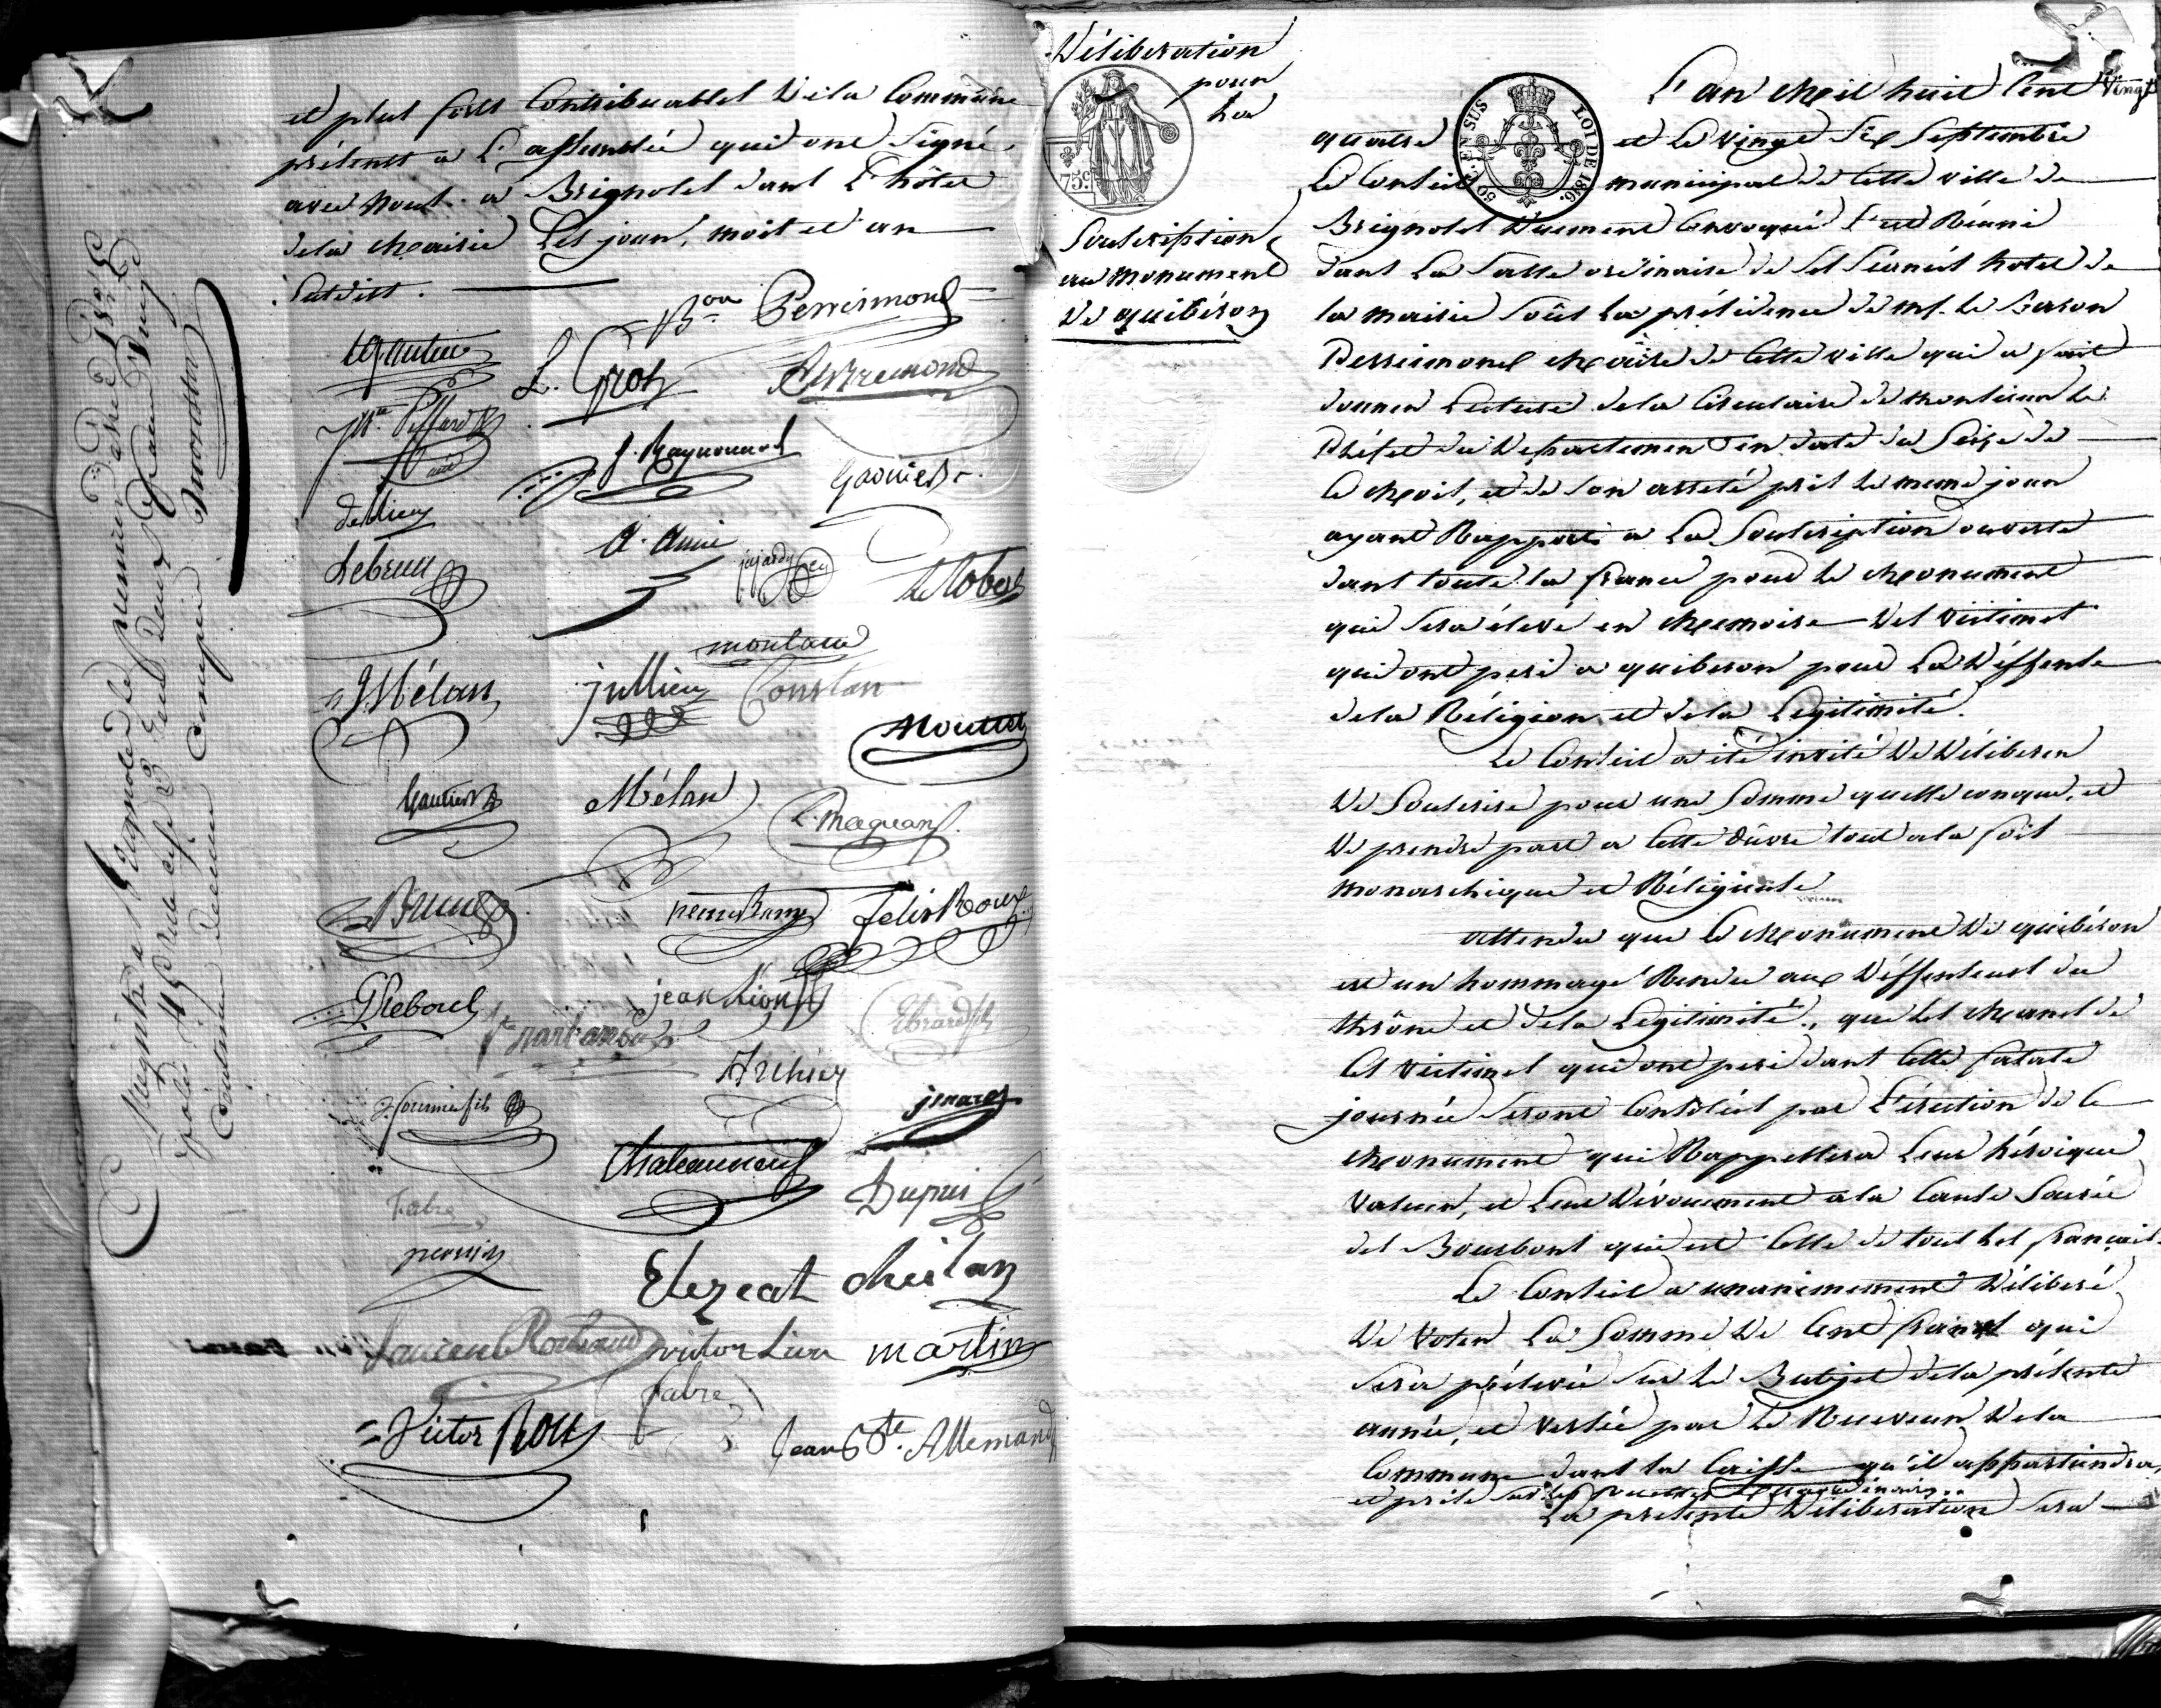 et plus forts Contribuables de la Commune
présents a L'assemblée qui ont Signé
avec nous. a Brignoles dans L'hôtel
de la Mairie Les jour, mois et an
Susdits.
Bon Perrimond
L. Gros
J. Raynouard
Garnier
Lebrun
A. Amic
J. Mélan
jullien
Constan
Moutet
Gautier
Mélan
L. Maquan
Brun
felix Roux
Reboul
jean Lion
Ebrard fils
Chateauneuf
Dupuis
Fabre
Elezeat
chielan
victor Lion
martin
fabre
Victor Roux
Jean Bte. Allemand
Enregistré a Brignoles le premier
Déliberation
pour
La
Souscription
au monument
de quibéron
75 c.
50 C. EN SUS
LOI DE 1816.
L'an Mil huit Cent Vingt
quatre et Le vingt Six Septembre
Le Conseil municipal de Cette ville de
Brignoles Duement Convoqué S'est Réuni
dans La Salle ordinaire de Ses Séances hotel de
la mairie sous La présidence de Mr. Le Baron
Perrimond Maire de Cette ville qui a fait
donner Lecture de la Circulaire de Monsieur Le
Préfet du Departement en date du Seize de
Ce Mois, et de Son arreté pris Le meme jour
ayant Rapport a La Souscription ouverte
dans toute la france pour Le Monument
qui sera élevé en Memoire des victimes
qui ont peri a quiberon pour La Déffense
de la Réligion et de la Légitimité.
Le Conseil a été invité De Déliberer
De Souscrire pour une Somme quelleconque, et
De prendre part a Cette Oûvre tout a la fois
monarchique et Réligieuse
attendu que Le Monument de quibéron
est un hommage Rendu aux Déffenseurs du
thrône et de la Légitimité., que Les Manes de
Ces victimes qui ont peri dans Cette fatale
journée Seront Consolées par L'érection de Ce
Monument qui Rappellera Leur héroique
valeur, et Leur Dévouement a la Cause Sacrée
des Bourbons qui est Celle de tous Les français.
Le Conseil a unanimement Déliberé
De Voter La Somme De Cent francs qui
Sera prélevée sur Le Budjet de la présente
année, et versée par Le Receveur De la
Commune dans la Caisse qu'il appartiendra,
et prise sur les recettes extraordinaires..
La presente Déliberation Sera